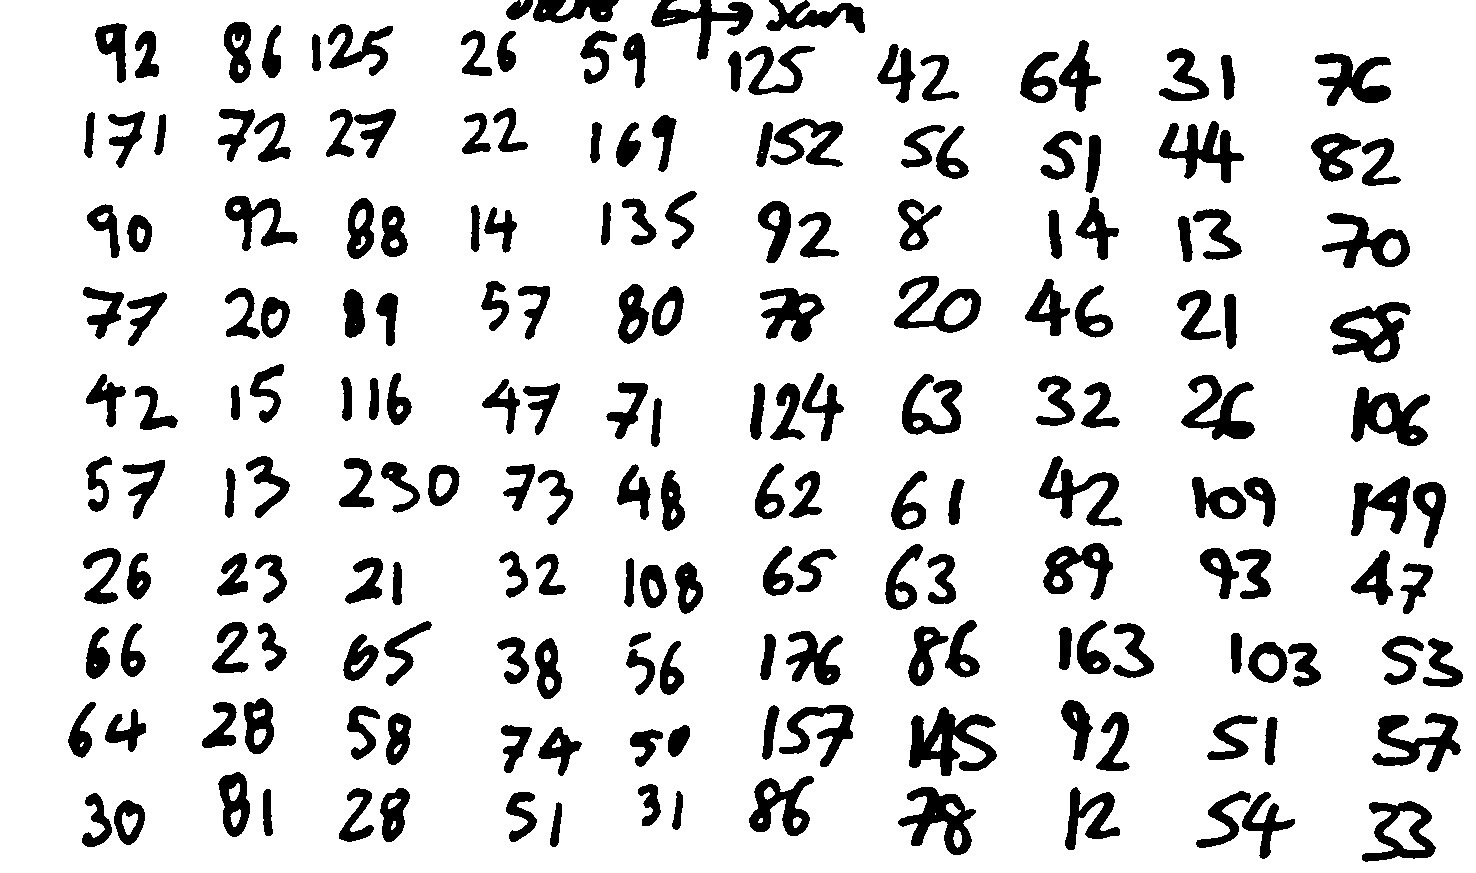 92 86 125 26 59 125 42 64 31 76
171 72 27 22 169 152 56 51 44 82
90 92 88 14 135 92 8 14 13 70
77 20 89 57 80 78 20 46 21 58
42 15 116 47 71 124 63 32 26 106
57 13 230 73 48 62 61 42 109 149
26 23 21 32 108 65 63 89 93 47
66 23 65 38 56 176 86 163 103 53
64 28 58 74 50 157 145 92 51 37
30 81 28 51 31 86 78 12 54 33